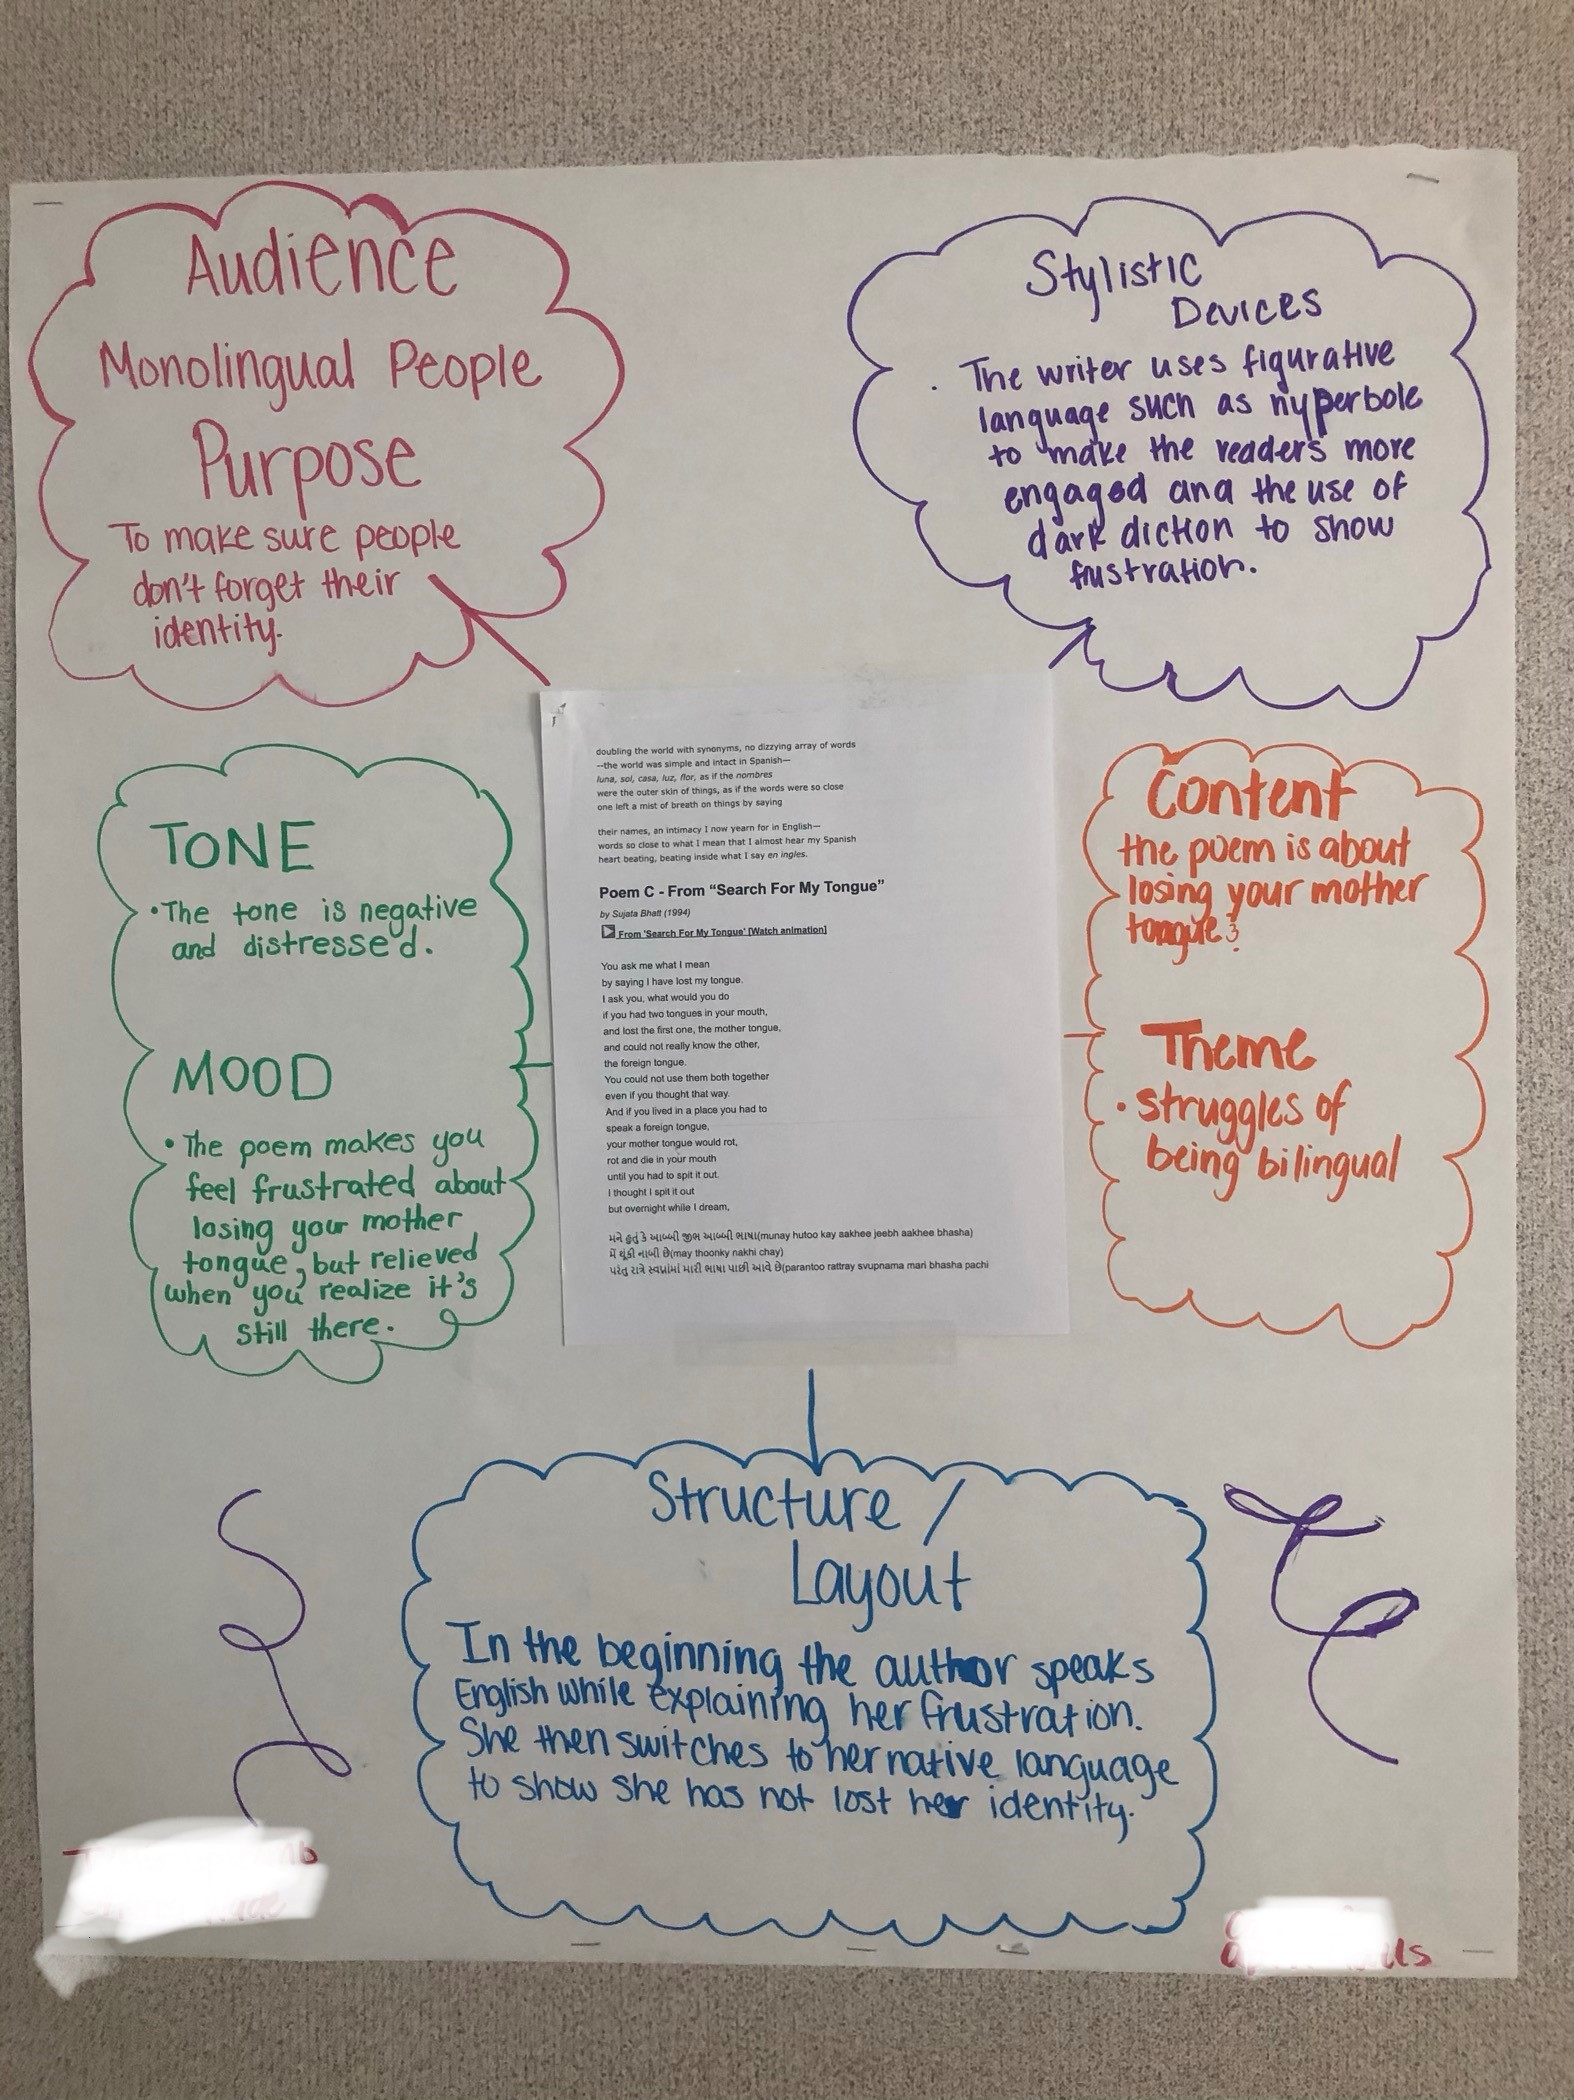 Audience
Monolingual People
Purpose
To make sure people
don't forget their
identity.
Stylistic
Devices
. The writer uses figurative
language such as hyperbole
to make the readers more
engaged and the use of
dark diction to show
frustration.
TONE
•The tone is negative
and distressed.
MOOD
• The poem makes you
feel frustrated about
losing your mother
tongue, but relieved
when you realize it's
still there.
doubling the world with synonyms, no dizzying array of words
--the world was simple and intact in Spanish—
luna, sol, casa, luz, flor, as if the nombres
were the outer skin of things, as if the words were so close
one left a mist of breath on things by saying
their names, an intimacy I now yearn for in English—
words so close to what I mean that I almost hear my Spanish
heart beating, beating inside what I say en ingles.
Poem C - From “Search For My Tongue”
by Sujata Bhatt (1994)
From 'Search For My Tongue' [Watch animation]
You ask me what I mean
by saying I have lost my tongue.
I ask you, what would you do
if you had two tongues in your mouth,
and lost the first one, the mother tongue,
and could not really know the other,
the foreign tongue.
You could not use them both together
even if you thought that way.
And if you lived in a place you had to
speak a foreign tongue,
your mother tongue would rot,
rot and die in your mouth
until you had to spit it out.
I thought I spit it out
but overnight while I dream,
મને હુતું કે આબ્બી જીભ આબ્બી ભાષા(munay hutoo kay aakhee jeebh aakhee bhasha)
મેં થૂંકી નાબી છે(may thoonky nakhi chay)
પરંતુ રાત્રે સ્વપ્નાંમાં મારી ભાષા પાછી આવે છે(parantoo rattray svupnama mari bhasha pachi
Content
the poem is about
losing your mother
tongue
Theme
• struggles of
being bilingual
Structure /
Layout
In the beginning the author speaks
English while explaining her frustration.
She then switches to her native language
to show she has not lost her identity.